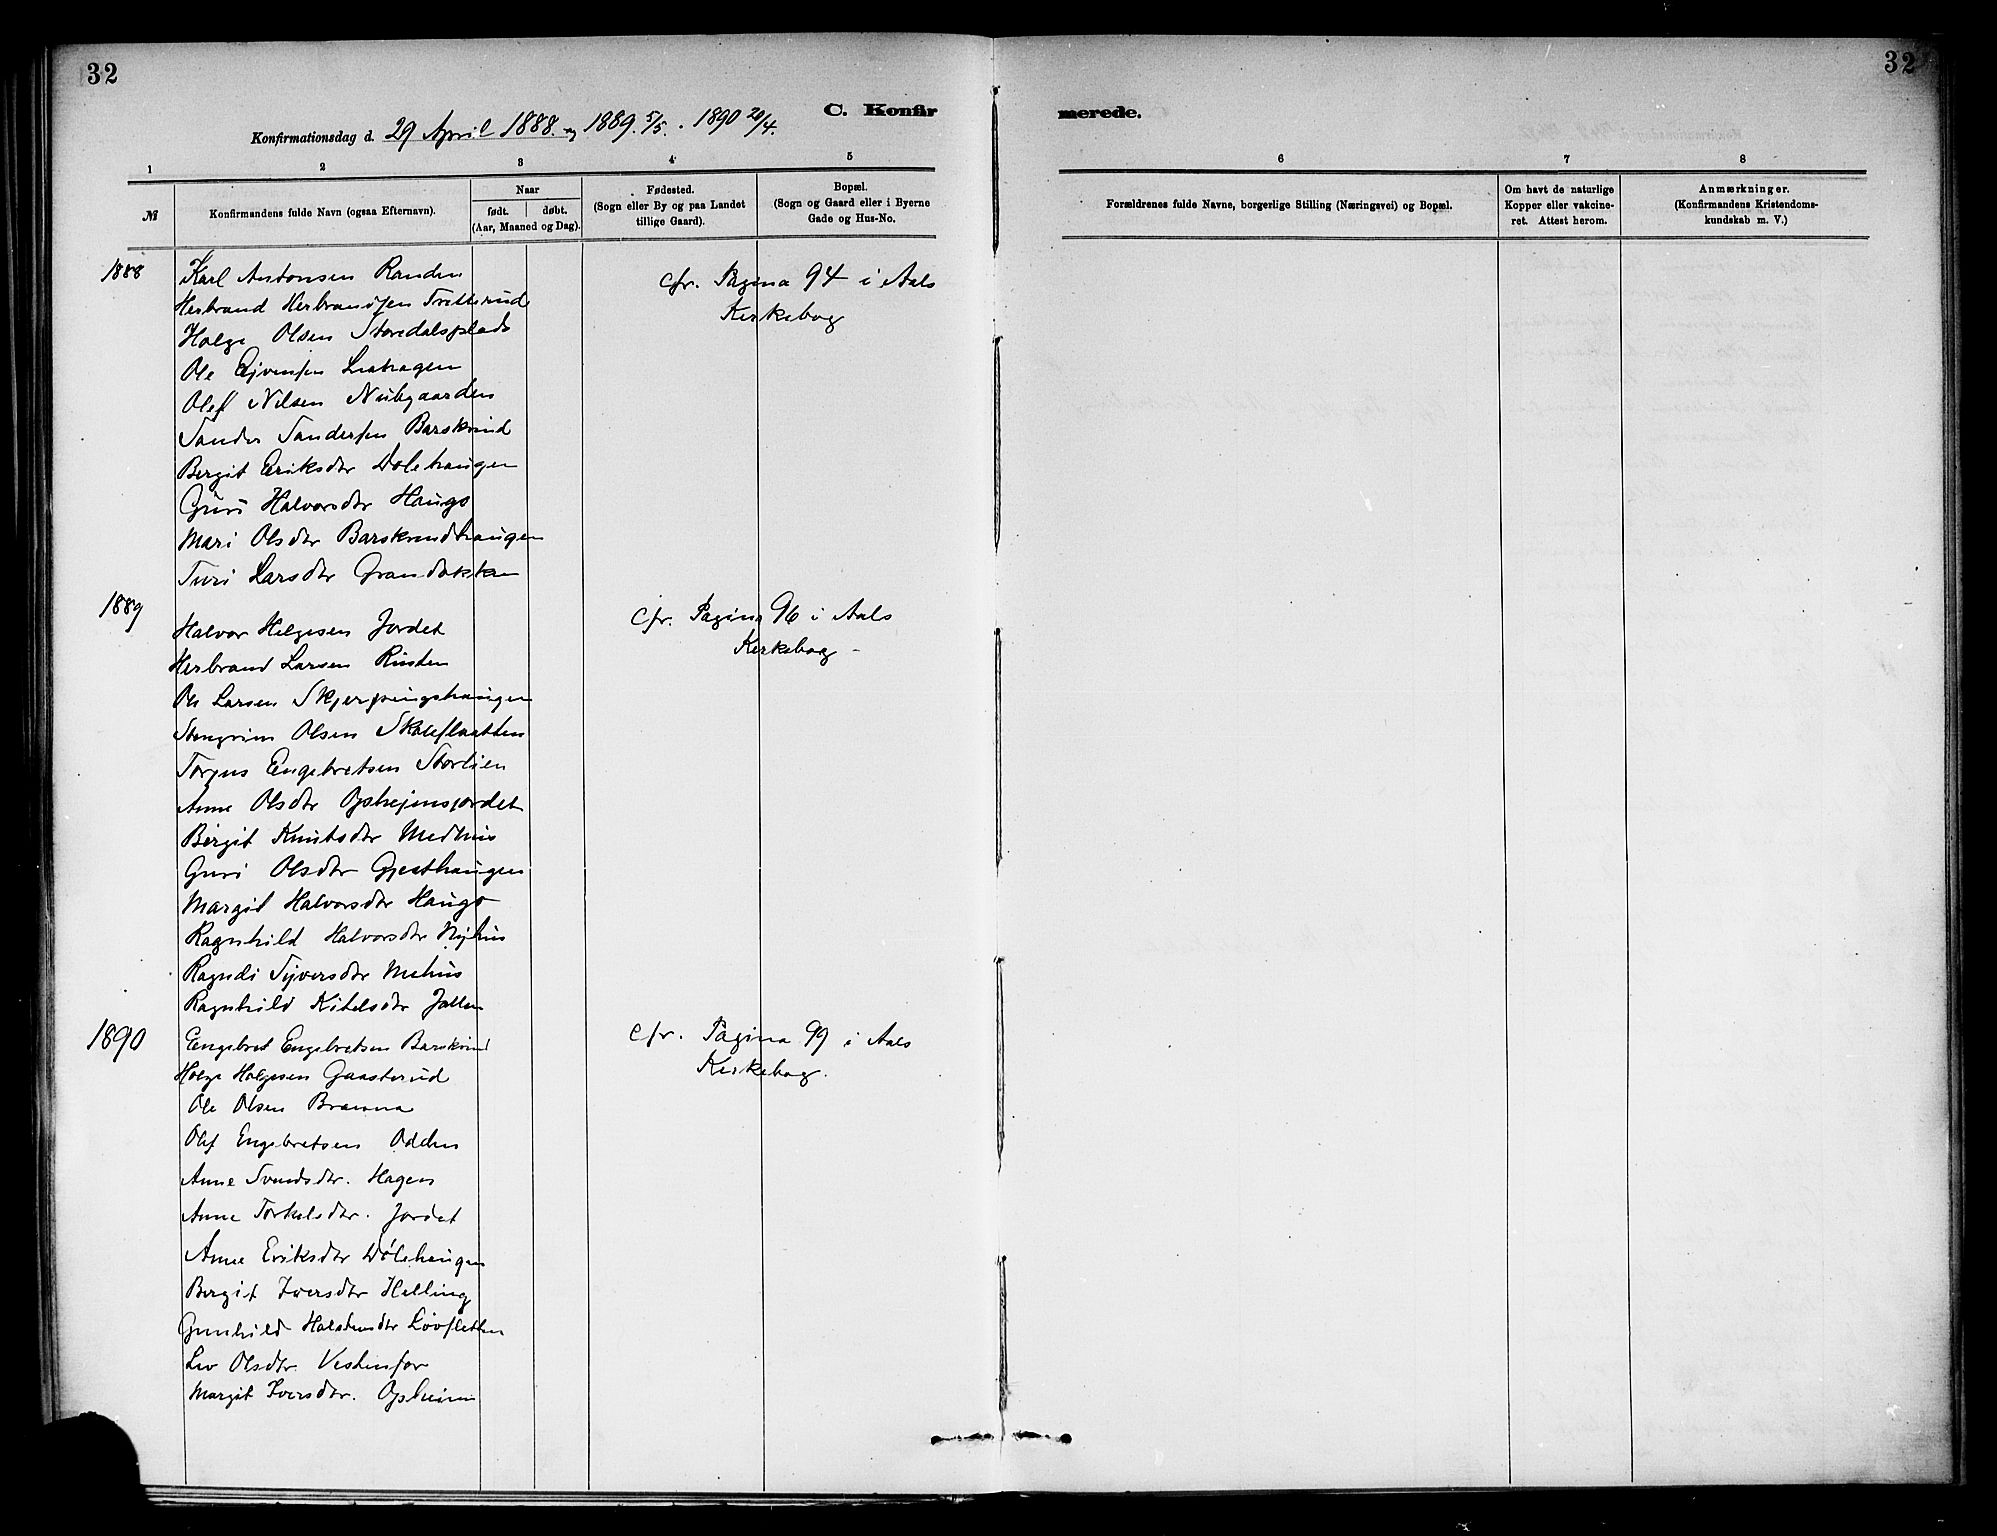 32
32
C. Konfir
merede.
Konfirmationsdag d. 29 April 1888. og 1889. 5/5. . 1890 20/4.
1 2 3 4 5
6 7 8
№
Konfirmandens fulde Navn (ogsaa Efternavn).
Naar
født. døbt.
(Aar, Maaned og Dag).
Fødested.
(Sogn eller By og paa Landet
tillige Gaard).
Bopæl.
(Sogn og Gaard eller i Byerne
Gade og Hus-No.
Forældrenes fulde Navne, borgerlige Stilling (Næringsvei) og Bopæl.
Om havt de naturlige
Kopper eller vakcine-
ret. Attest herom.
Anmærkninger.
(Konfirmandens Kristendoms-
kundskab m. V.)
1888 Karl Antonsen Randen cfr. Pagina 94 i Aals
Herbrand Herbrandsen Tretterud Kirkebog
Helge Olsen Storedalsplads
Ole Ejvensen Liahagen
Olef Nilsen Nubgaarden
Sander Sandersen Barskrind
Bergit Eriksdtr Dolehaugen
Guri Halvorsdtr Haugo
Mari Olsdtr Barskrindhaugen
Turi Larsdtr Grandokken
1889 Halvor Helgesen Jordet cfr. Pagina 96 i Aals
Herbrand Larsen Rusten Kirkebog -
Ole Larsen Skjerpingshaugen
Stengrim Olsen Skoleflaatten
Torgus Engebretsen Storlien
Anne Olsdtr Opheimsjordet
Birgit Knutsdtr Medhus
Guri Olsdtr Gjesthaugen
Margit Halvorsdtr Haugo
Ragnhild Halvorsdtr Nyhus
Ragndi Syversdtr Mehus
Ragnhild Kitelsdtr Jallen
1890 Engebret Engebretsen Barskrind cfr. Pagina 99 i Aals
Helge Helgesen Gaasterud Kirkebog.
Ole Olsen Braanna
Olef Engebretsen Odden
Anne Svendsdtr. Hagen
Anne Torkelsdtr. Jordet
Anne Eriksdtr Dölehaugen
Bergit Iversdtr Helling
Gunhild Halstensdtr Lövfletten
Liv Olsdtr. Vestenfor
Margit Iversdtr. Opheim